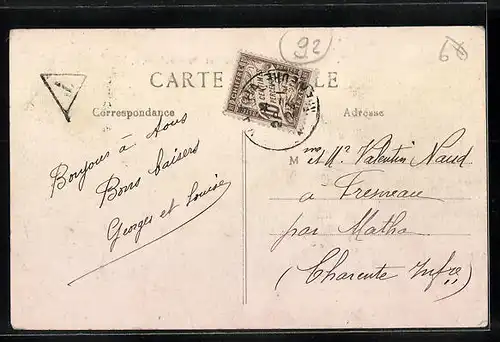 92
60
T
CARTE LE
Correspondance
Adresse
Bonjour à tous
Bons baisers
Georges et Louise
Mme et Mr Valentin Naud
à Fresneau
par Matha
(Charente Infre)